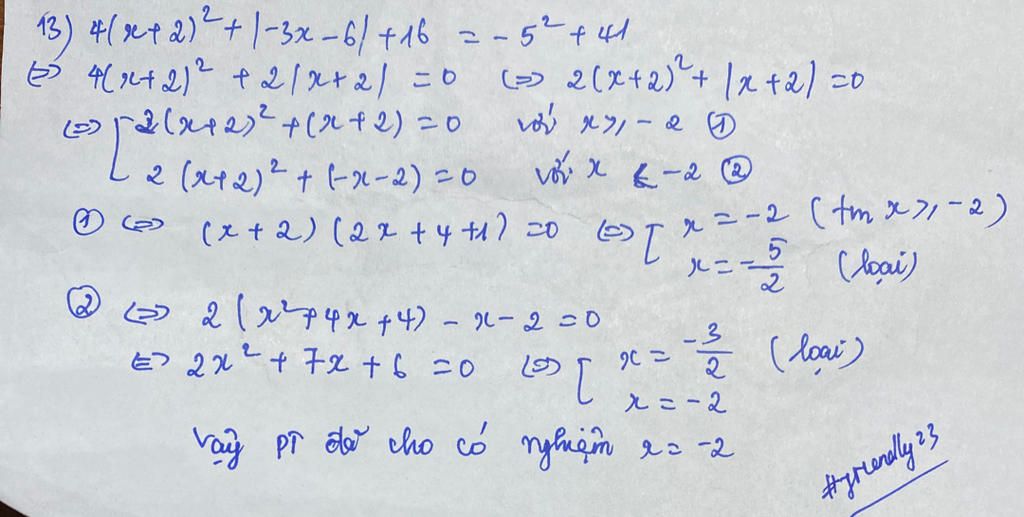 13) 4(x+2)² + |-3x-6| + 16 = -5² + 41
⇔ 4(x+2)² + 2|x+2| = 0 ⇔ 2(x+2)² + |x+2| = 0
⇔ [ 2(x+2)² + (x+2) = 0 với x ≥ -2 ①
2(x+2)² + (-x-2) = 0 với x < -2 ②
① ⇔ (x+2)(2x+4+1) = 0 ⇔ [ x = -2 (tm x ≥ -2)
x = -5/2 (loại)
② ⇔ 2(x²+4x+4) - x - 2 = 0
⇔ 2x² + 7x + 6 = 0 ⇔ [ x = -3/2 (loại)
x = -2
Vậy PT đã cho có nghiệm x = -2
#friendly23